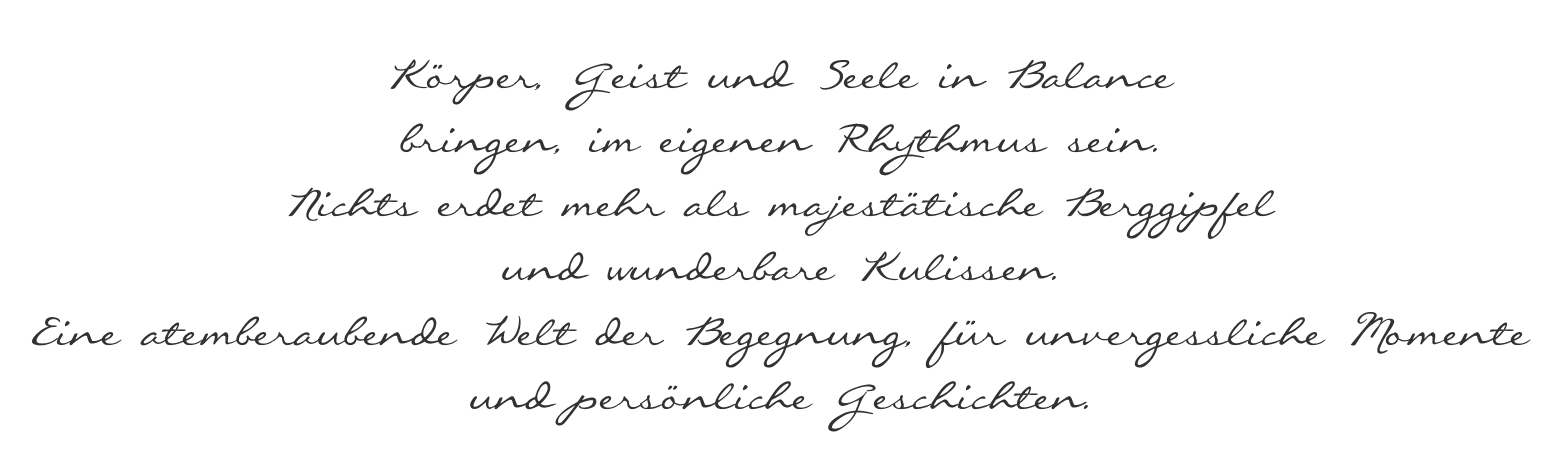 Körper, Geist und Seele in Balance
bringen, im eigenen Rhythmus sein.
Nichts erdet mehr als majestätische Berggipfel
und wunderbare Kulissen.
Eine atemberaubende Welt der Begegnung, für unvergessliche Momente
und persönliche Geschichten.